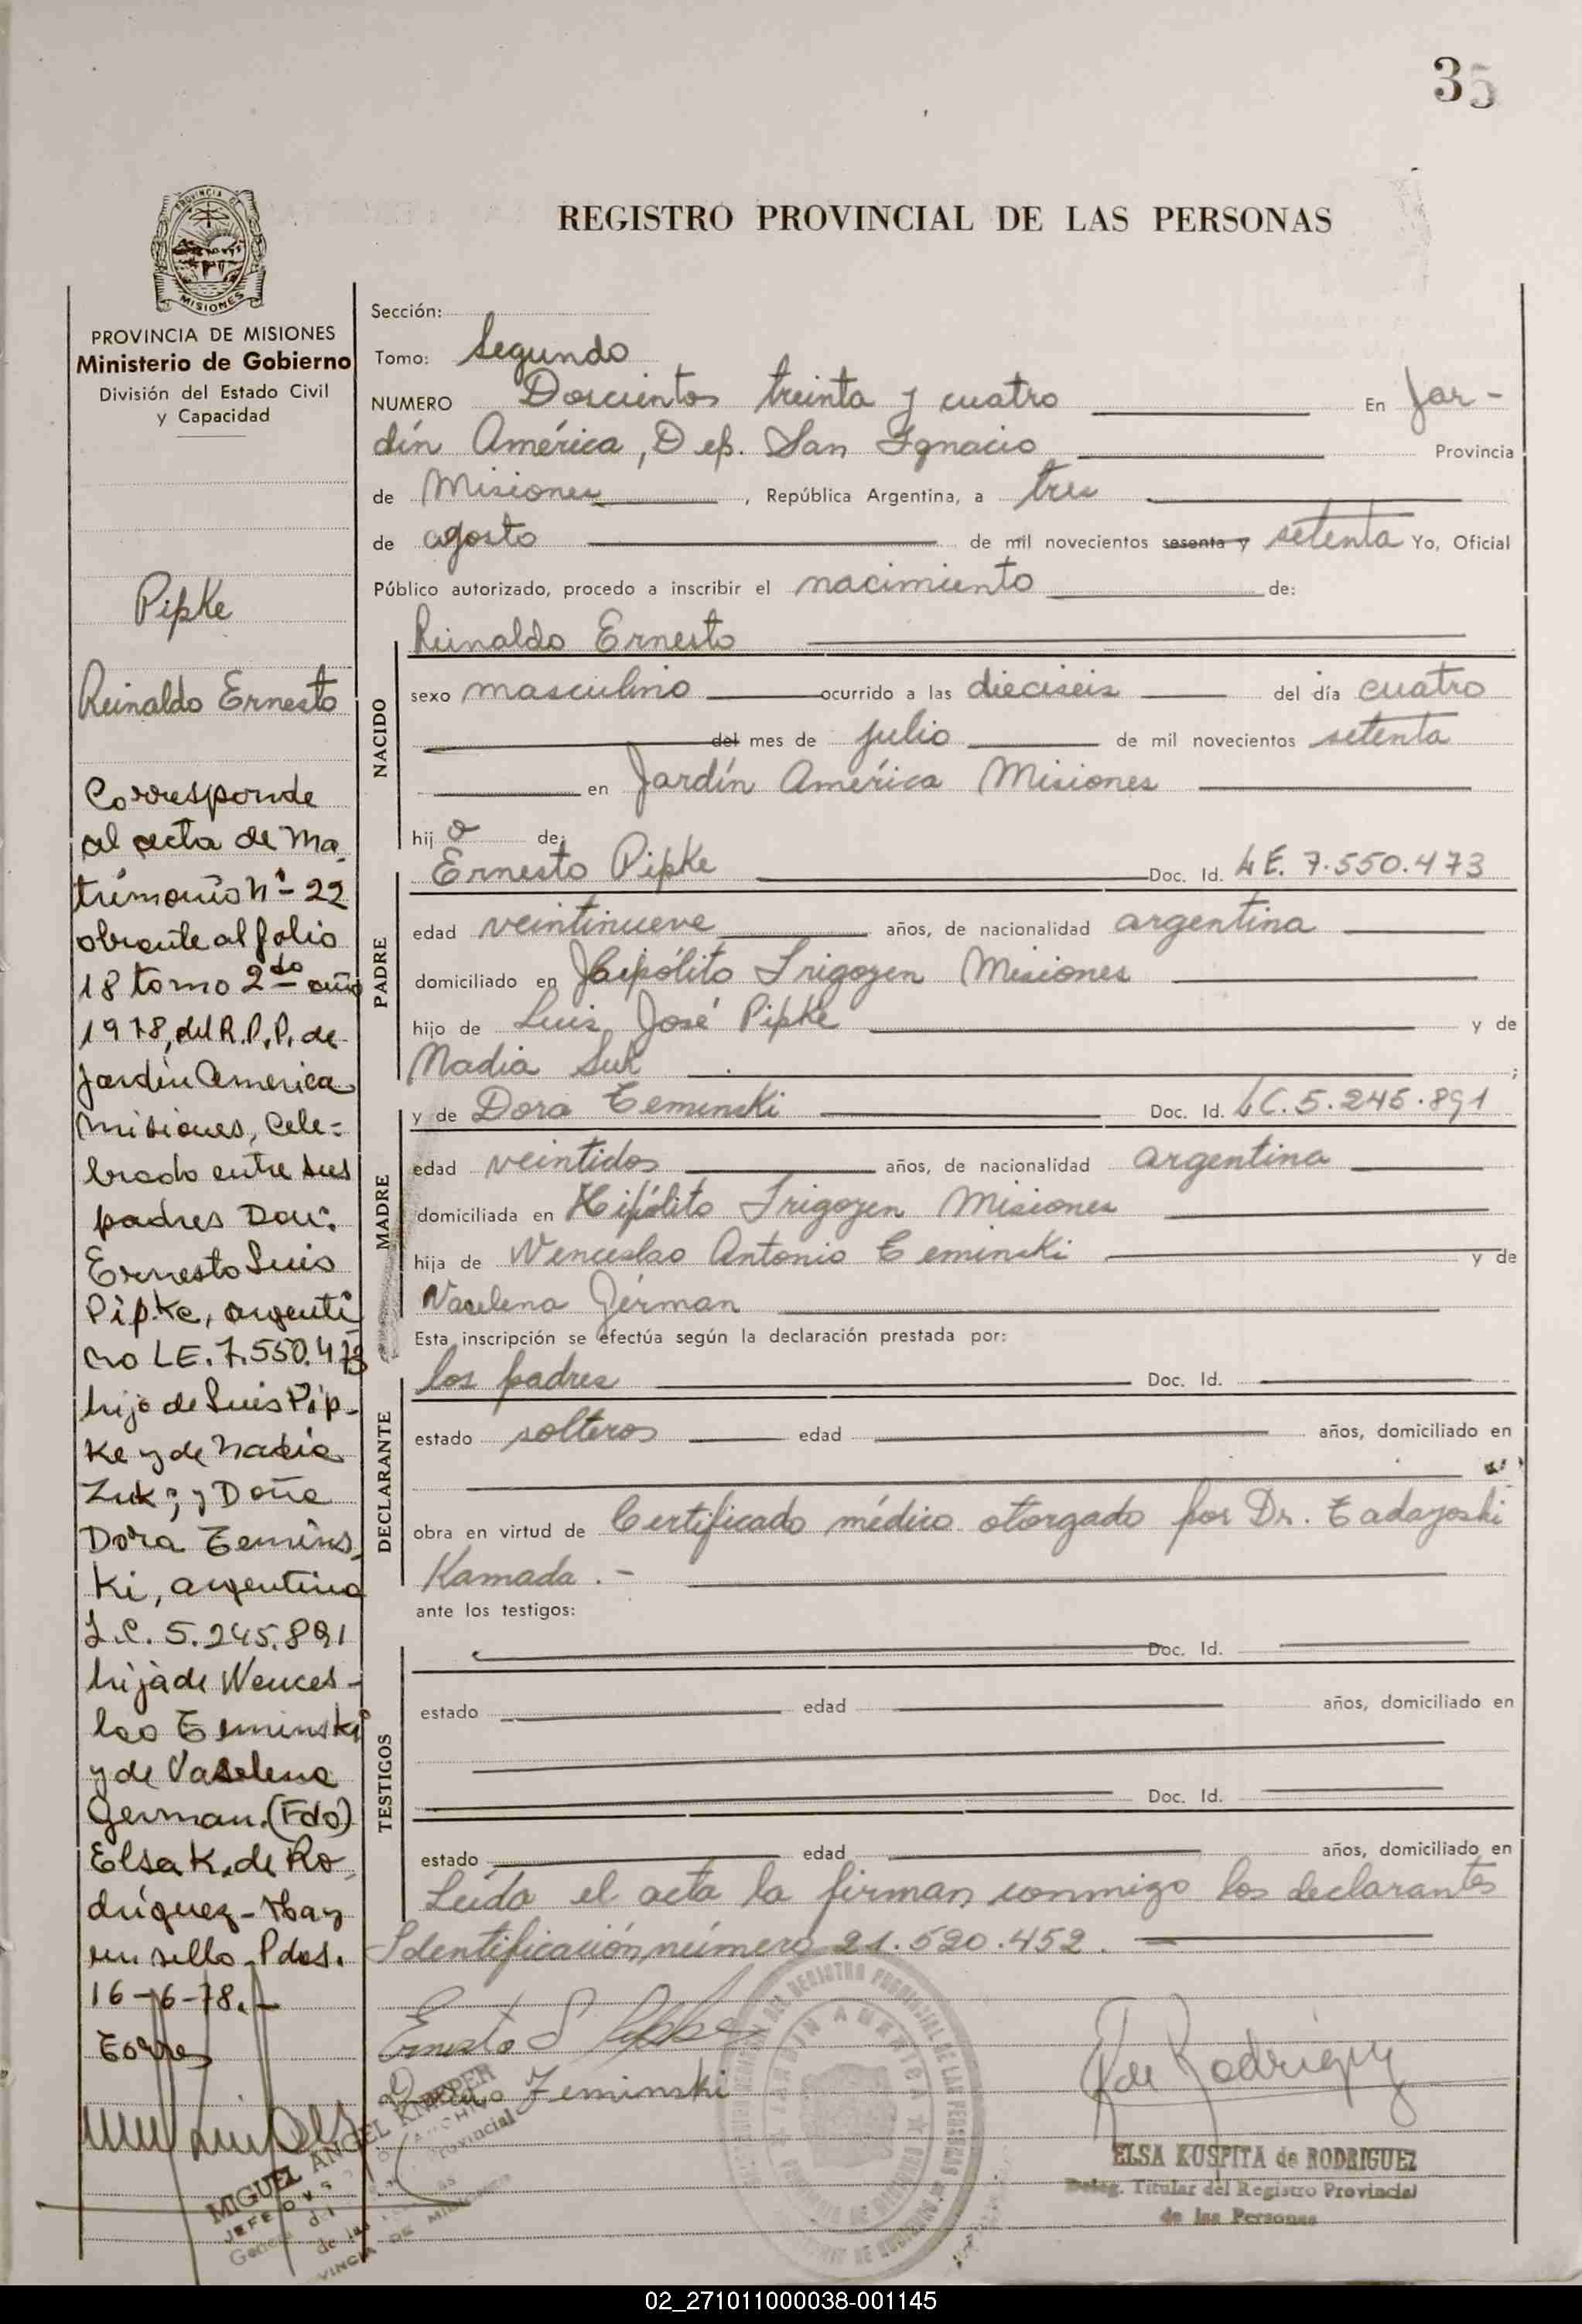 35
REGISTRO PROVINCIAL DE LAS PERSONAS
PROVINCIA DE MISIONES
Ministerio de Gobierno
División del Estado Civil
y Capacidad
Pipke
Reinaldo Ernesto
Corresponde
al acta de Ma-
trimonio Nº 22
obrante al folio
18 tomo 2do año
1978, del R.P.P. de
Jardin America
Misiones, Cele=
brado entre sus
padres Don:
Ernesto Luis
Pipke, argenti
no LE. 7.550.473
hijo de Luis Pip-
ke y de Nadia
Zuk; y Doña
Dora Temins-
ki, argentina
L.C. 5.245.891
hija de Wences-
lao Teminski
y de Vaselena
German. (Fdo)
Elsa K. de Ro-
dríguez - Hay
un sello - Pdas.
16-6-78.-
Torres
MIGUEL ANGEL KNIPPER
JEFE
Sección:
Tomo: Segundo
NUMERO Doscientos treinta y cuatro En Jar-
dín América, Dep. San Ignacio Provincia
de Misiones, República Argentina, a tres
de agosto de mil novecientos sesenta y setenta Yo, Oficial
Público autorizado, procedo a inscribir el nacimiento de:
Reinaldo Ernesto
NACIDO
sexo masculino ocurrido a las dieciseis del día cuatro
del mes de julio de mil novecientos setenta
en Jardín América Misiones
hijo de:
Ernesto Pipke Doc. Id. LE. 7.550.473
PADRE
edad veintinueve años, de nacionalidad argentina
domiciliado en Hipólito Irigoyen Misiones
hijo de Luis José Pipke y de
Nadia Suk ;
y de Dora Teminski Doc. Id. LC. 5.245.891
MADRE
edad veintidos años, de nacionalidad argentina
domiciliada en Hipólito Irigoyen Misiones
hija de Wenceslao Antonio Teminski y de
Vaselena Jérman
Esta inscripción se efectúa según la declaración prestada por:
los padres Doc. Id.
DECLARANTE
estado solteros edad años, domiciliado en
obra en virtud de Certificado médico otorgado por Dr. Tadayoshi
Kamada .-
ante los testigos:
Doc. Id.
TESTIGOS
estado edad años, domiciliado en
Doc. Id.
estado edad años, domiciliado en
Leída el acta la firman conmigo los declarantes
Identificación número 21.520.452.
Ernesto L Pipke
Teminski
K de Rodriguez
ELSA KUSPITA de RODRIGUEZ
Deleg. Titular del Registro Provincial
de las Personas
JARDIN AMERICA
02_271011000038-001145